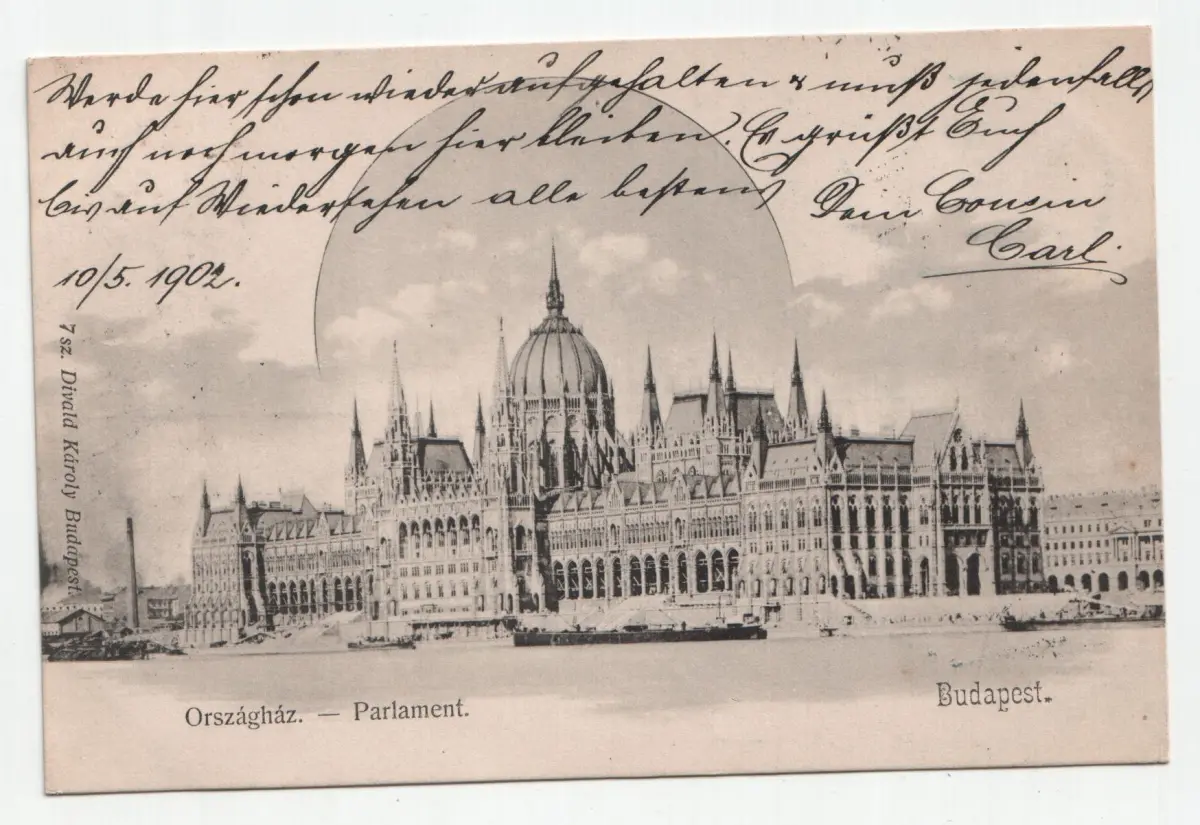 Werde hier schon wieder aufgehalten & muß jedenfalls
auch noch morgen hier bleiben. Es grüßt Euch
bis auf Wiedersehen alle bestens
Dein Cousin
Carl.
10/5. 1902.
7 sz. Divald Károly Budapest.
Országház. — Parlament.
Budapest.